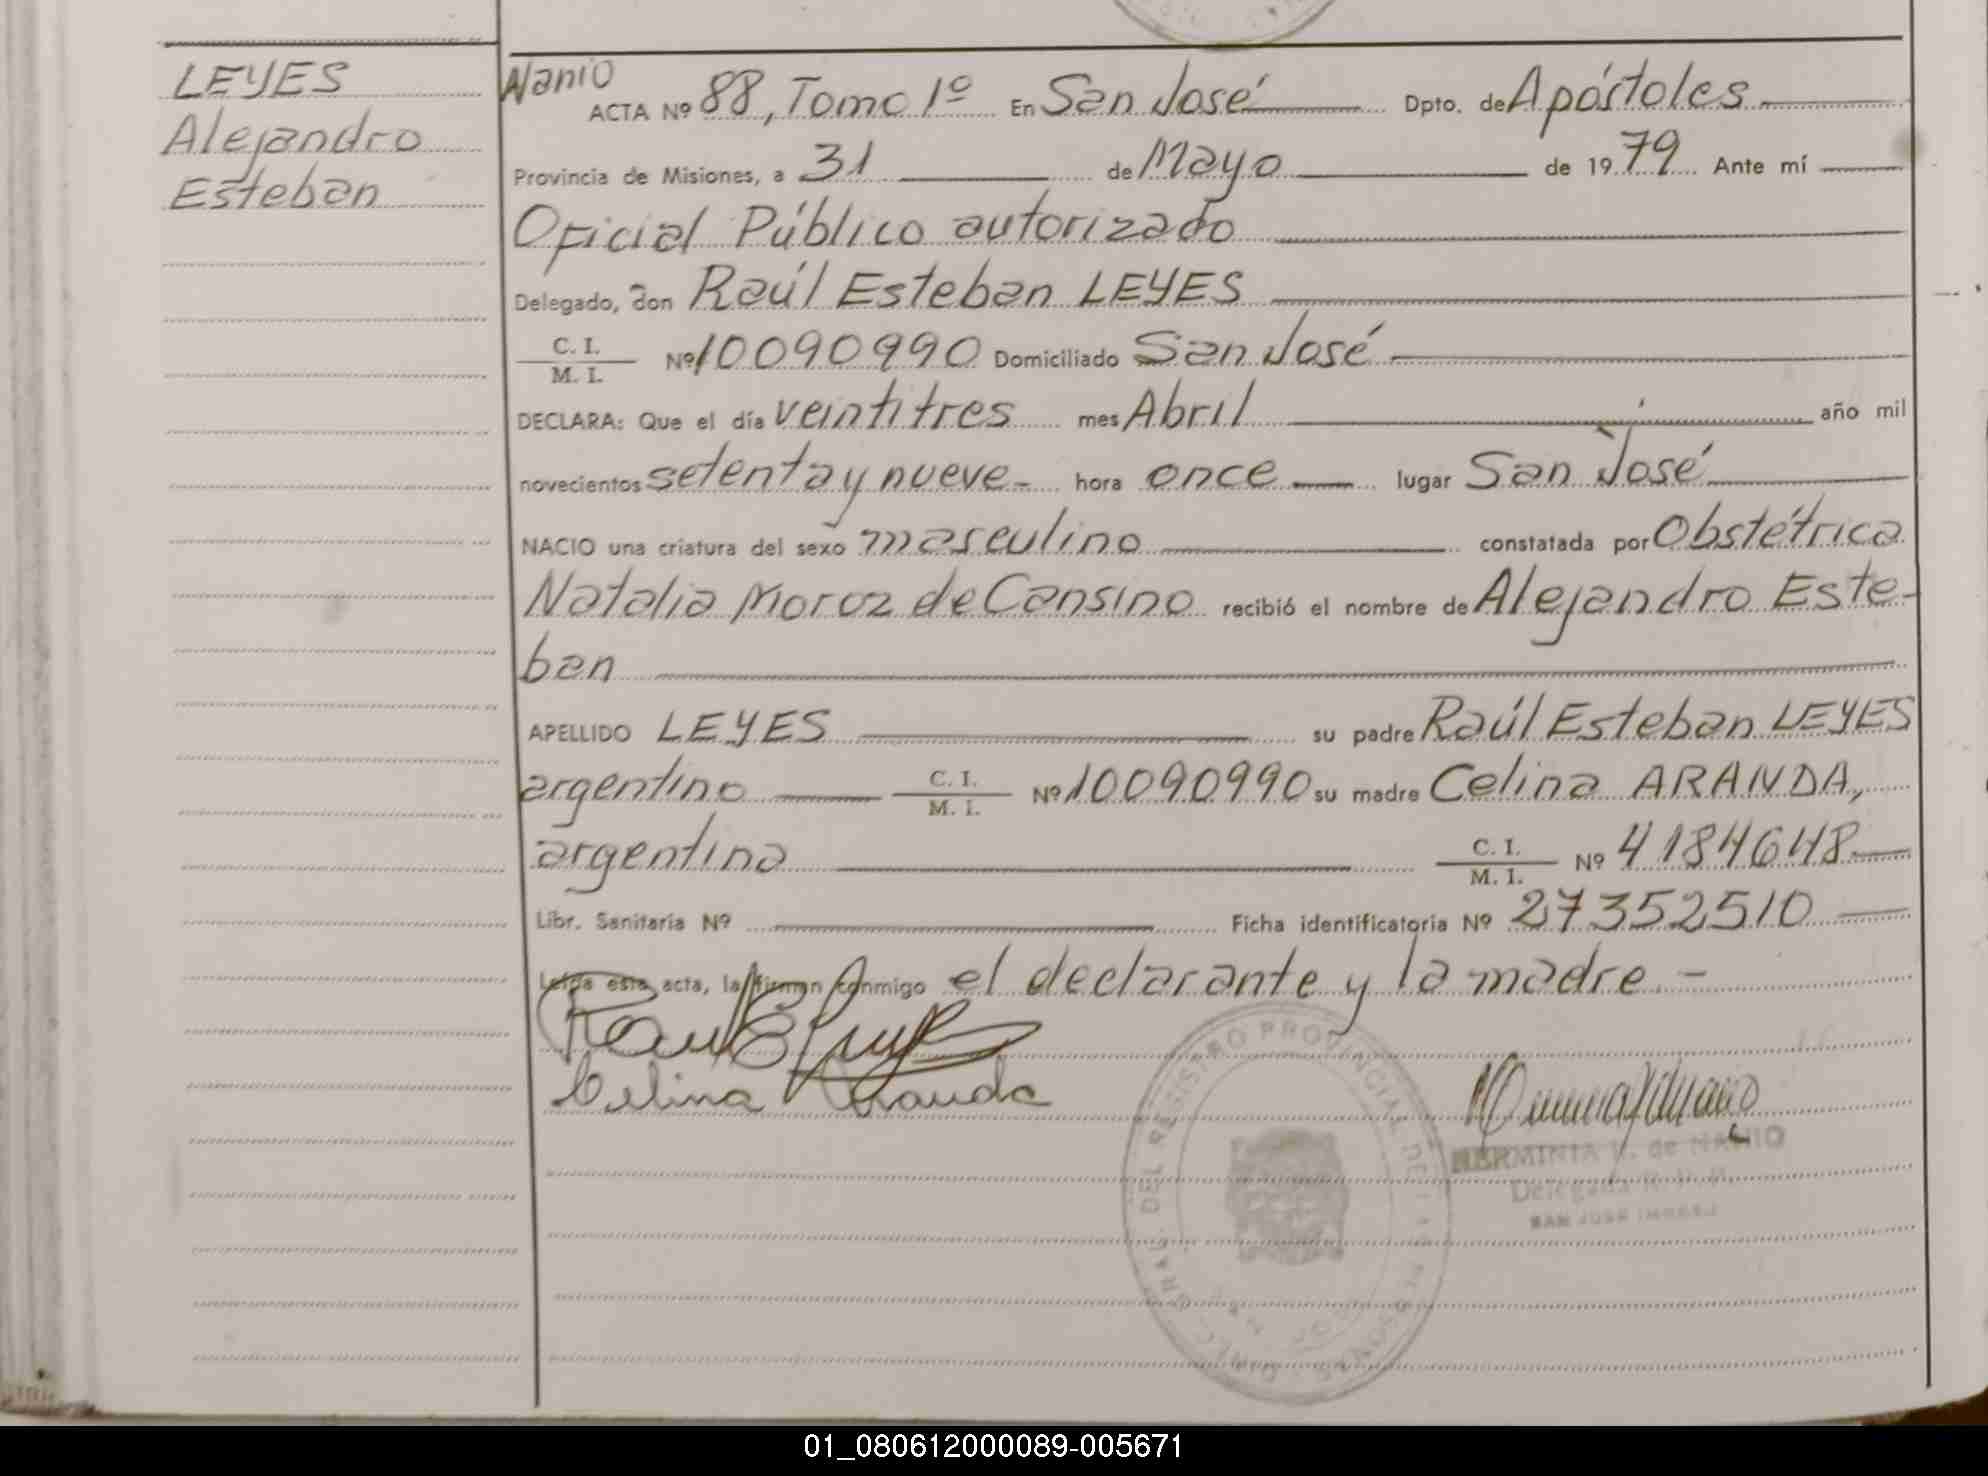 LEYES
Alejandro
Esteban
Nanio
ACTA Nº 88, Tomo 1º En San José Dpto. de Apóstoles
Provincia de Misiones, a 31 de Mayo de 1979 Ante mí
Oficial Público autorizado
Delegado, don Raúl Esteban LEYES
C. I.
M. I. Nº 10090990 Domiciliado San José
DECLARA: Que el día veintitres mes Abril año mil
novecientos setenta y nueve- hora once lugar San José
NACIO una criatura del sexo masculino constatada por Obstétrica
Natalia Moroz de Cansino recibió el nombre de Alejandro Este-
ban
APELLIDO LEYES su padre Raúl Esteban LEYES
argentino C. I.
M. I. Nº 10090990 su madre Celina ARANDA,
argentina C. I.
M. I. Nº 4184648
Libr. Sanitaria Nº Ficha identificatoria Nº 27352510
Leída esta acta, la firman conmigo el declarante y la madre.-
Celina Aranda
HERMINIA de NANIO
Delegada
SAN JOSE
REGISTRO PROVINCIAL DE LAS PERSONAS
01_080612000089-005671